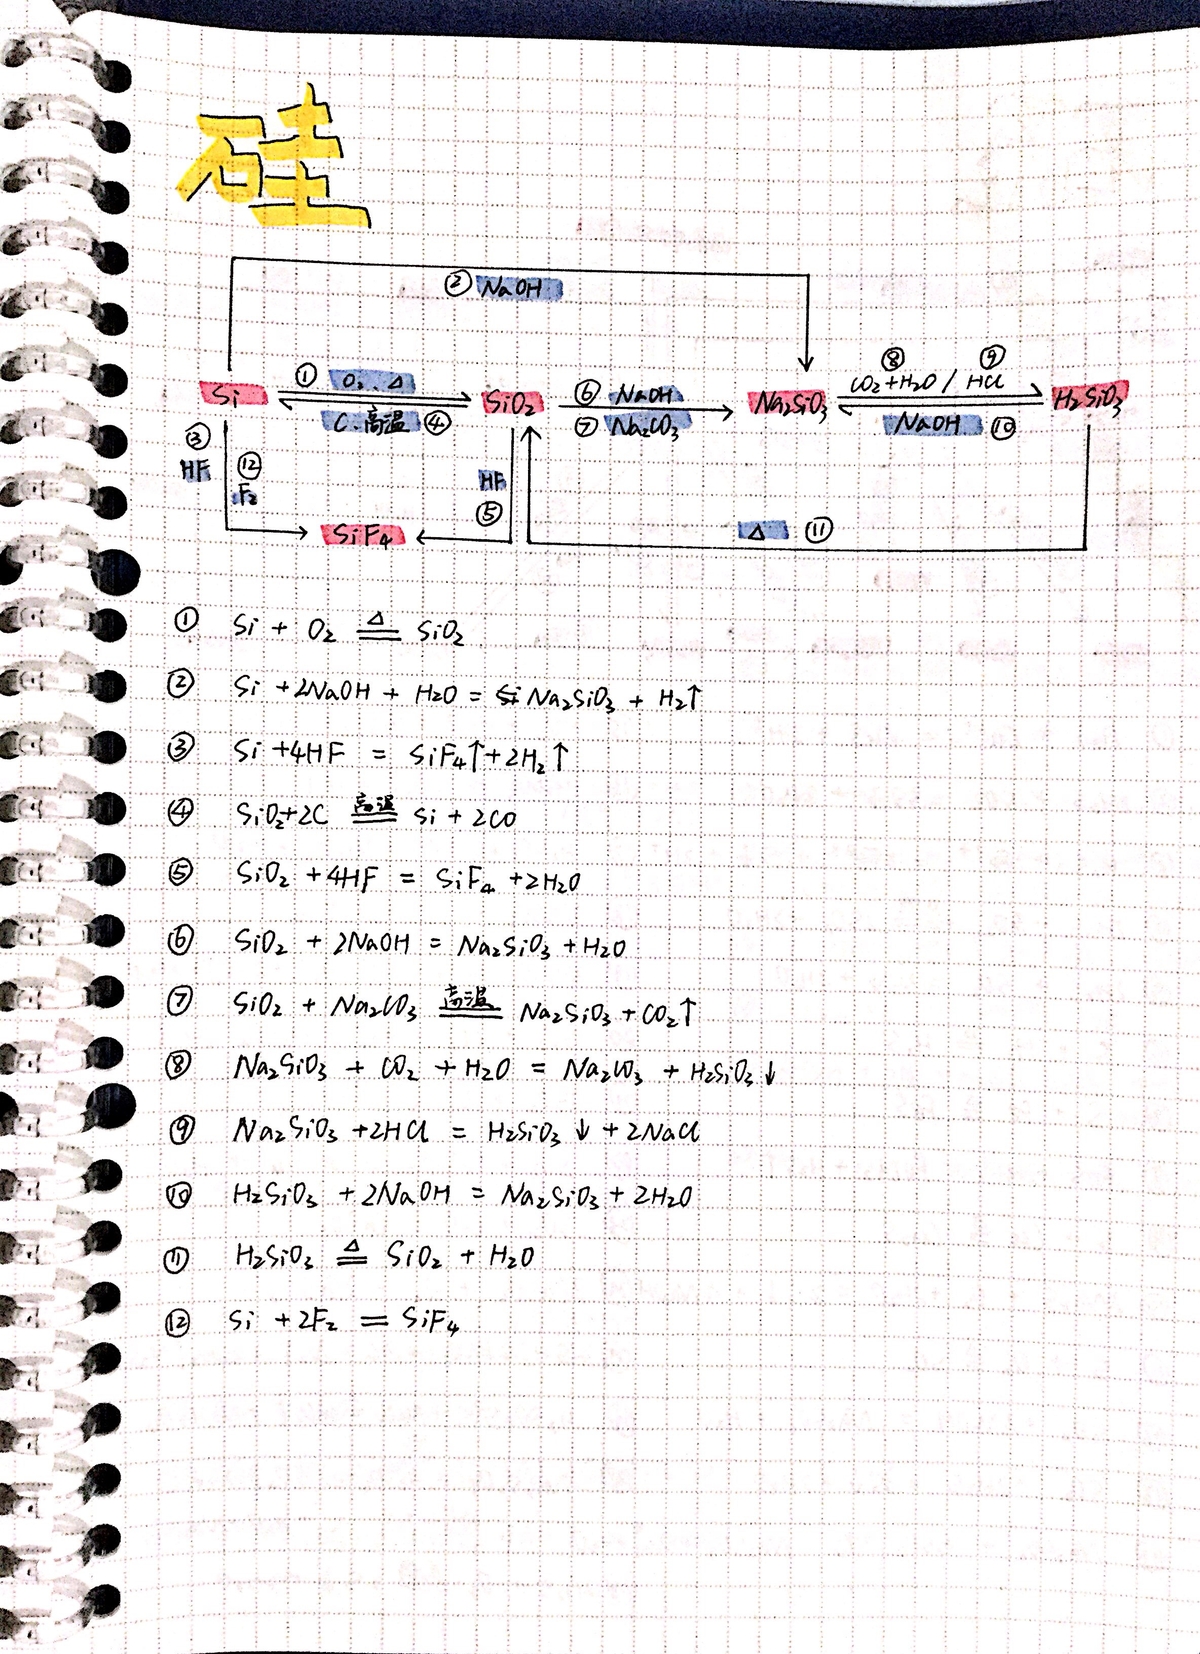 硅
② NaOH
⑧ ⑨
① O₂、△ ⑥ NaOH CO₂+H₂O / HCl
Si SiO₂ Na₂SiO₃ H₂SiO₃
C、高温 ④ ⑦ Na₂CO₃ NaOH ⑩
③ HF ⑫ F₂ HF ⑤
SiF₄ △ ⑪
① Si + O₂ ≜ SiO₂
② Si + 2NaOH + H₂O = Na₂SiO₃ + H₂↑
③ Si + 4HF = SiF₄↑ + 2H₂↑
④ SiO₂ + 2C 高温═ Si + 2CO
⑤ SiO₂ + 4HF = SiF₄ + 2H₂O
⑥ SiO₂ + 2NaOH = Na₂SiO₃ + H₂O
⑦ SiO₂ + Na₂CO₃ 高温═ Na₂SiO₃ + CO₂↑
⑧ Na₂SiO₃ + CO₂ + H₂O = Na₂CO₃ + H₂SiO₃↓
⑨ Na₂SiO₃ + 2HCl = H₂SiO₃↓ + 2NaCl
⑩ H₂SiO₃ + 2NaOH = Na₂SiO₃ + 2H₂O
⑪ H₂SiO₃ ≜ SiO₂ + H₂O
⑫ Si + 2F₂ = SiF₄